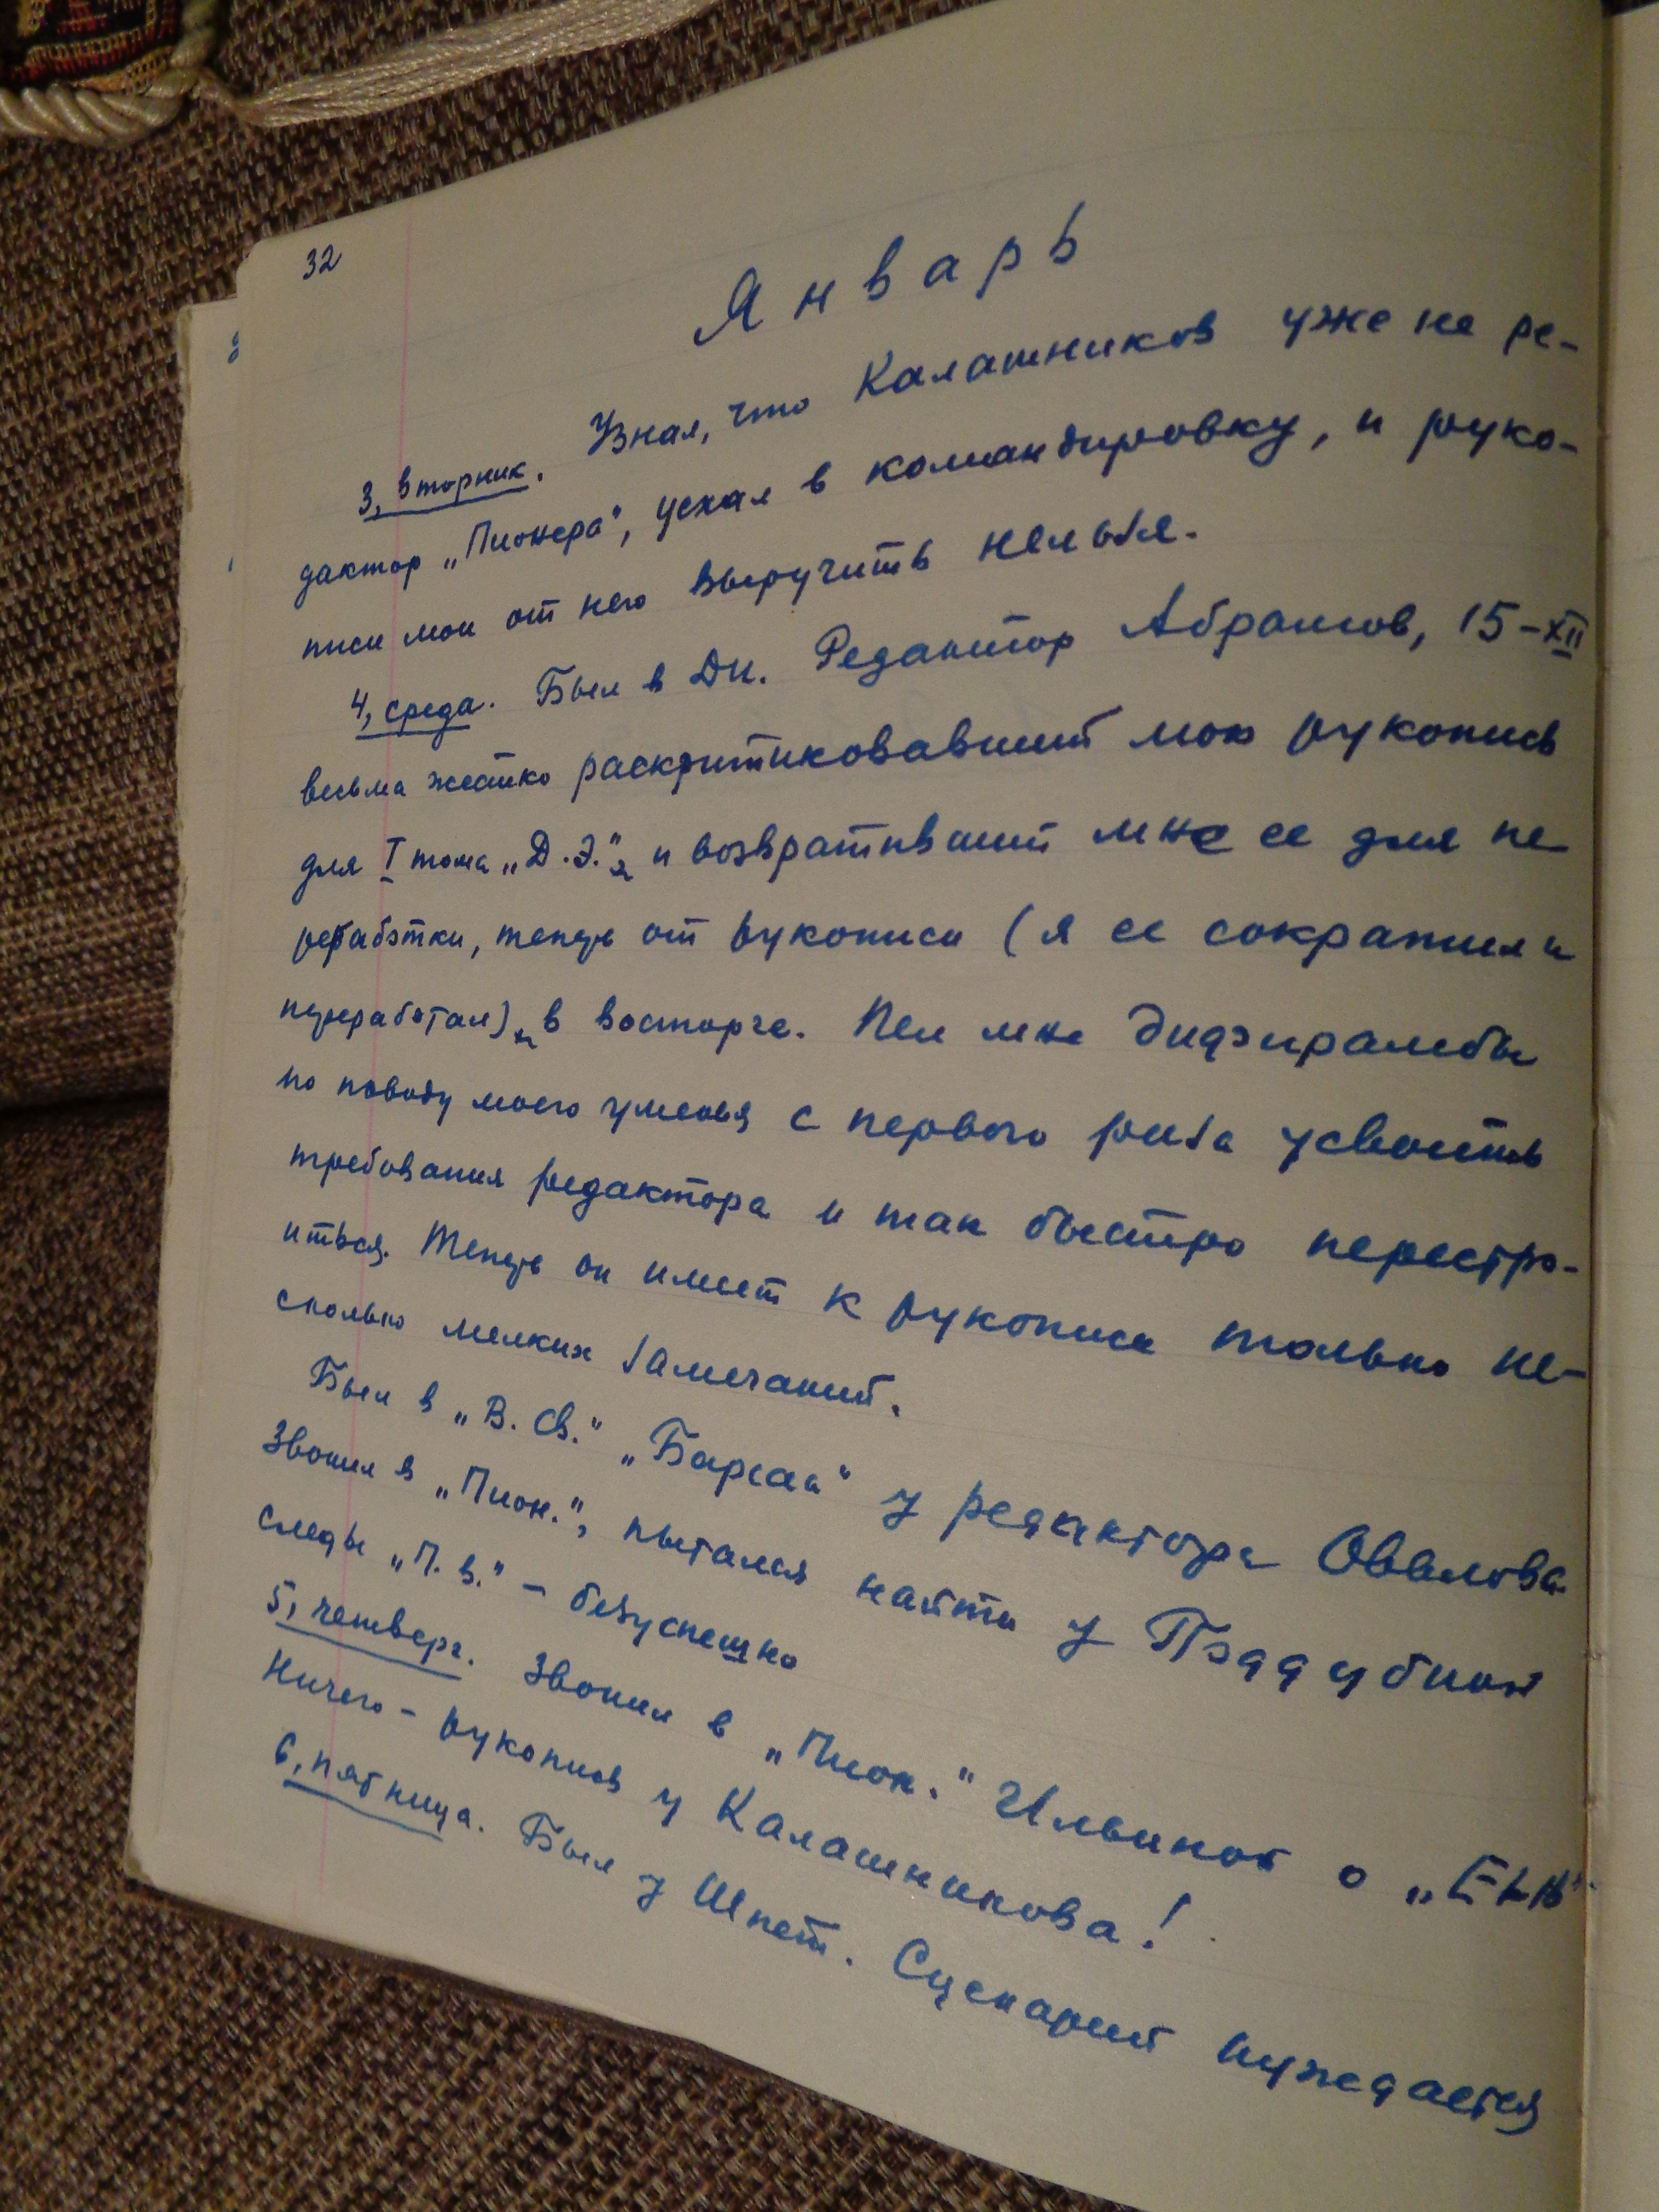 32
Январь
3, вторник. Узнал, что Калашников уже не ре-
дактор „Пионера“, уехал в командировку, и руко-
писи мои от него выручить нельзя.
4, среда. Был в ДИ. Редактор Абрамов, 15-XII
весьма жестко раскритиковавший мою рукопись
для I тома „Д.Э.“, и возвративший мне ее для пе
реработки, теперь от рукописи (я ее сократил и
переработал), в восторге. Пел мне дифирамбы
по поводу моего уменья с первого раза усвоить
требования редактора и так быстро перестро-
иться. Теперь он имеет к рукописи только не-
сколько мелких замечаний.
Был в „В. Св.“ „Барсак“ у редактора Овалова
Звонил в „Пион.“, пытался найти у Поддубной
следы „П. в.“ - безуспешно
5, четверг. Звонил в „Пион.“ Ильиной о
Ничего - рукопись у Калашникова!
6, пятница. Был у Шпет. Сценарий нуждается